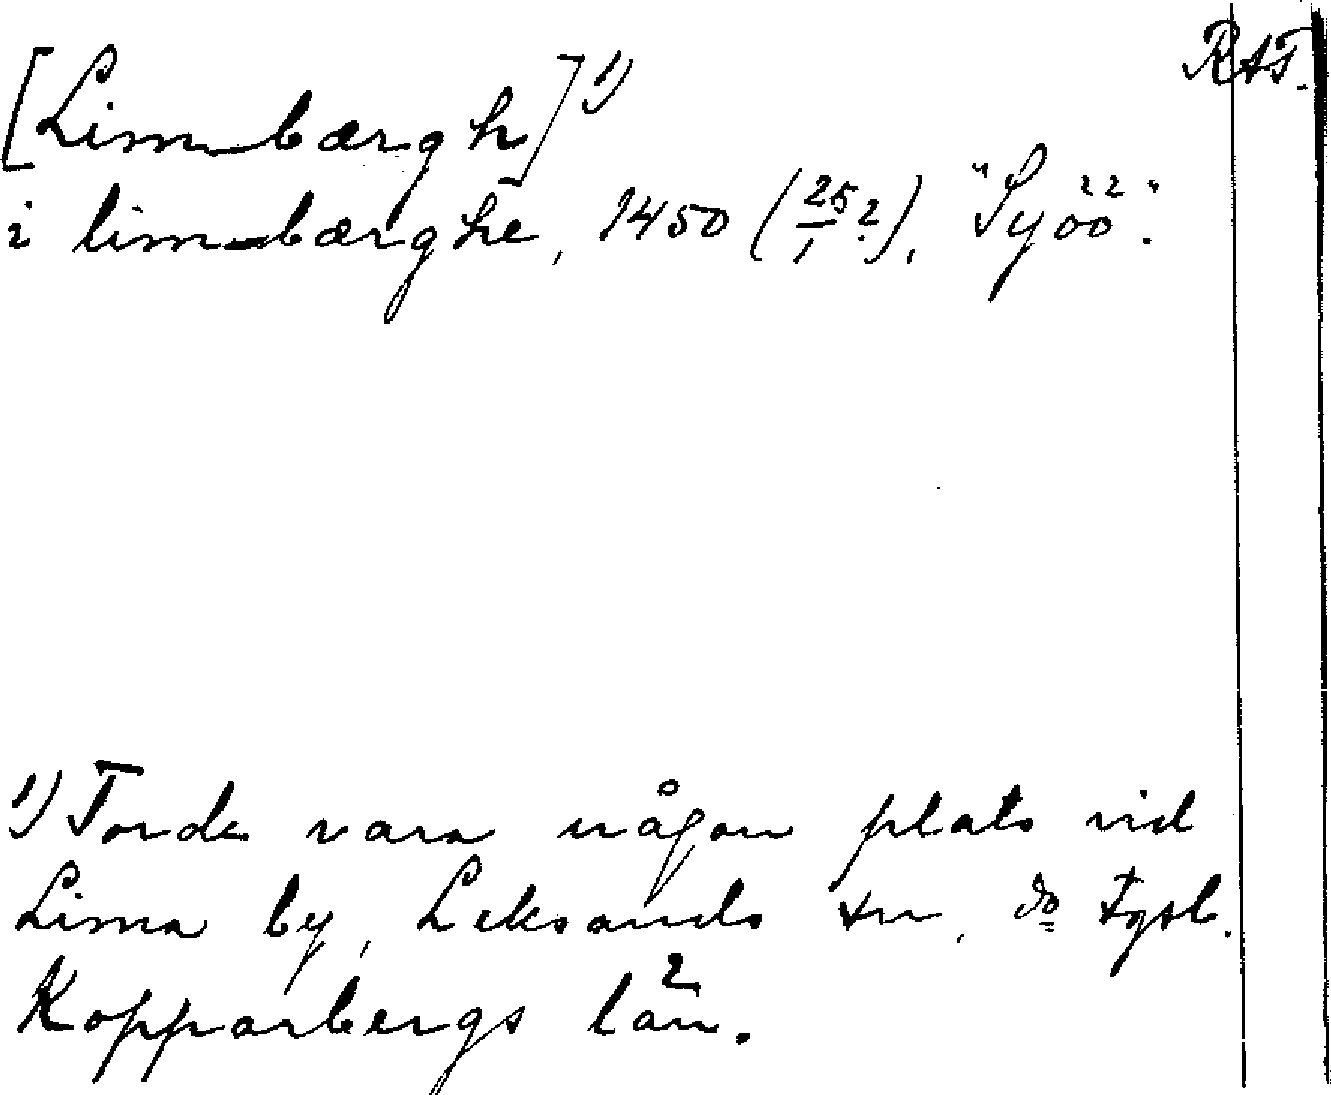 [Limbærgh]¹⁾ RAT.
i limbærghe, 1450 (25/1 ?), "Syöö".
¹⁾ Torde vara någon plats vid
Lima by, Leksands sn, do tgsl.
Kopparbergs län.